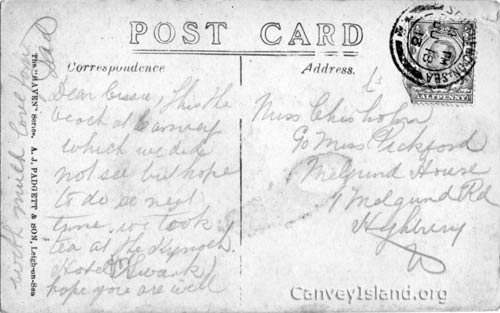 POST CARD
Correspondence
Address.
Dear Cissa. This the
beach at Canvey
which we did
not see but hope
to do so next
time. we took
tea at the Kynoch
Hotel (Swank)
hope you are well
with much love from
Dad
Miss Chisholm
c/o Miss Pickford
Melgund House
1 Melgund Rd
Highbury
N
HALFPENNY
The "HAVEN" Series. A. J. PADGETT & SON, Leigh-on-Sea
CanveyIsland.org